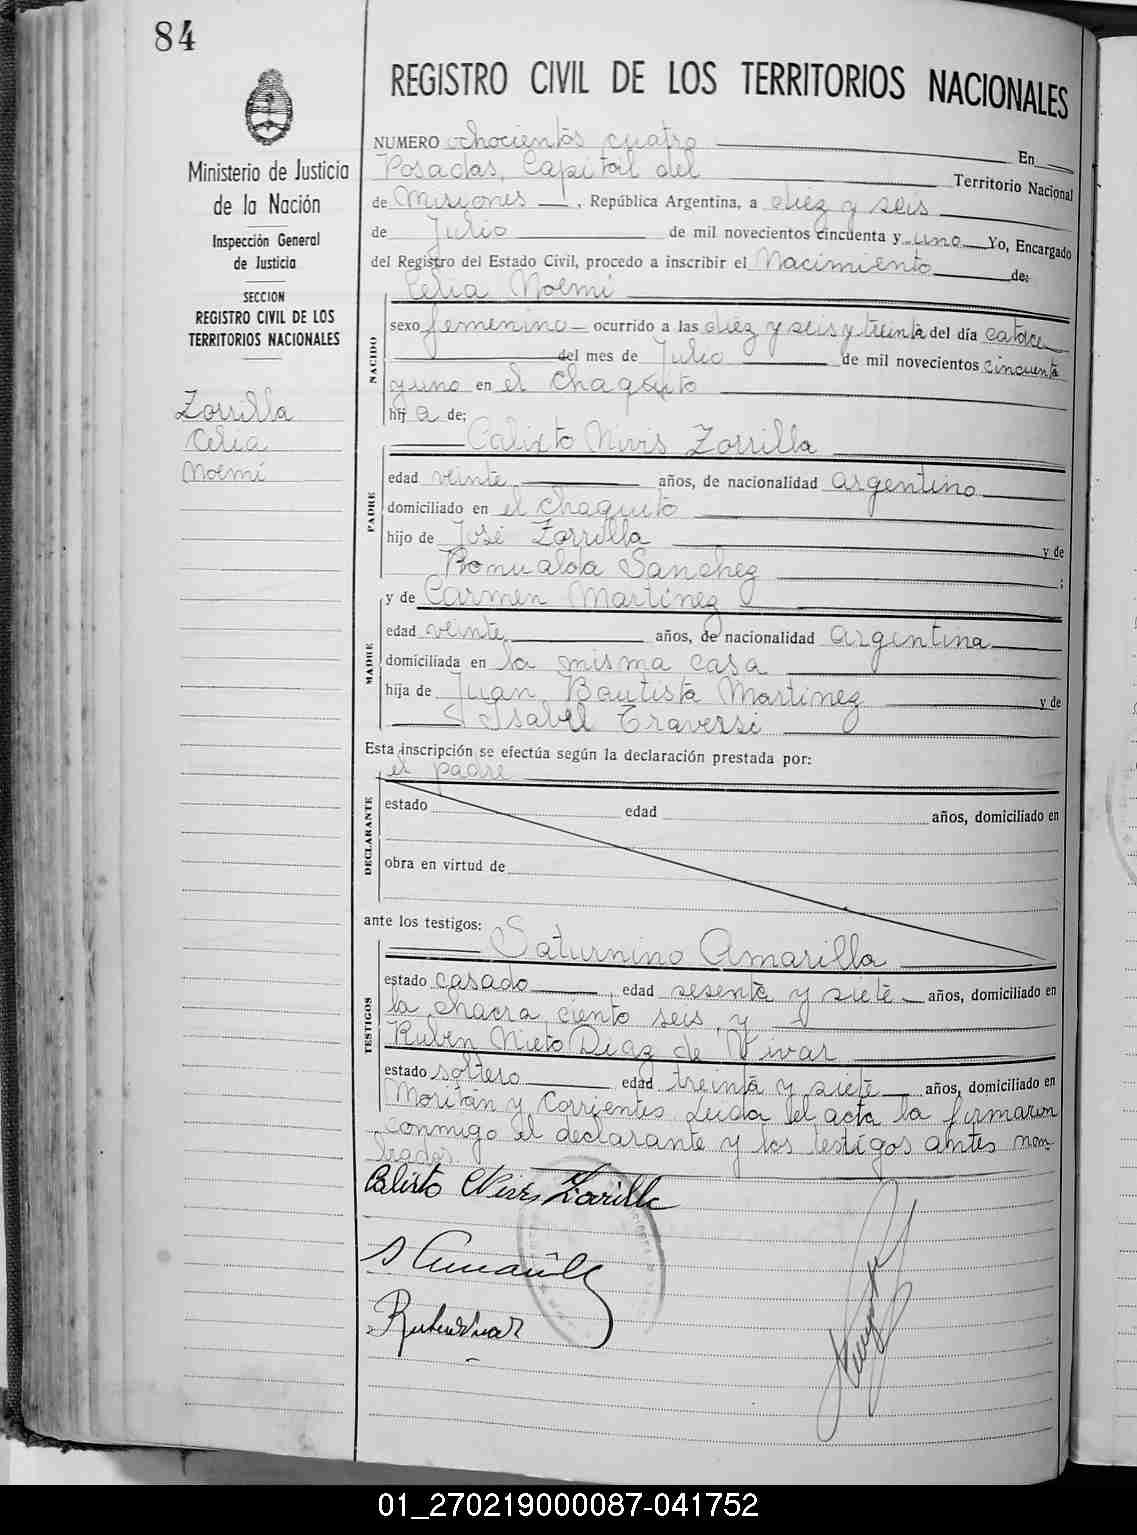 84
REGISTRO CIVIL DE LOS TERRITORIOS NACIONALES
Ministerio de Justicia
de la Nación
Inspección General
de Justicia
SECCION
REGISTRO CIVIL DE LOS
TERRITORIOS NACIONALES
Zorrilla
Celia
Noemí
NUMERO ochocientos cuatro En
Posadas, Capital del Territorio Nacional
de Misiones, República Argentina, a diez y seis
de Julio de mil novecientos cincuenta y uno Yo, Encargado
del Registro del Estado Civil, procedo a inscribir el Nacimiento de:
Celia Noemí
NACIDO
sexo femenino ocurrido a las diez y seis y treinta del día catorce
del mes de Julio de mil novecientos cincuenta
y uno en el Chaquito
hij a de;
Calixto Nivis Zorrilla
PADRE
edad veinte años, de nacionalidad argentino
domiciliado en el chaquito
hijo de José Zorrilla y de
Romualda Sanchez ;
y de Carmen Martinez
MADRE
edad veinte años, de nacionalidad argentina
domiciliada en la misma casa
hija de Juan Bautista Martinez y de
Isabel Traversi
Esta inscripción se efectúa según la declaración prestada por:
el padre
DECLARANTE
estado edad años, domiciliado en
obra en virtud de
ante los testigos:
Saturnino Amarilla
TESTIGOS
estado casado edad sesenta y siete años, domiciliado en
la chacra ciento seis y
Ruben Nieto Diaz de Vivar
estado soltero edad treinta y siete años, domiciliado en
y Corrientes. Leida el acta la firmaron
conmigo el declarante y los testigos antes nom
brados.
Calixto Nivis Zorrilla
S Amarilla
01_270219000087-041752